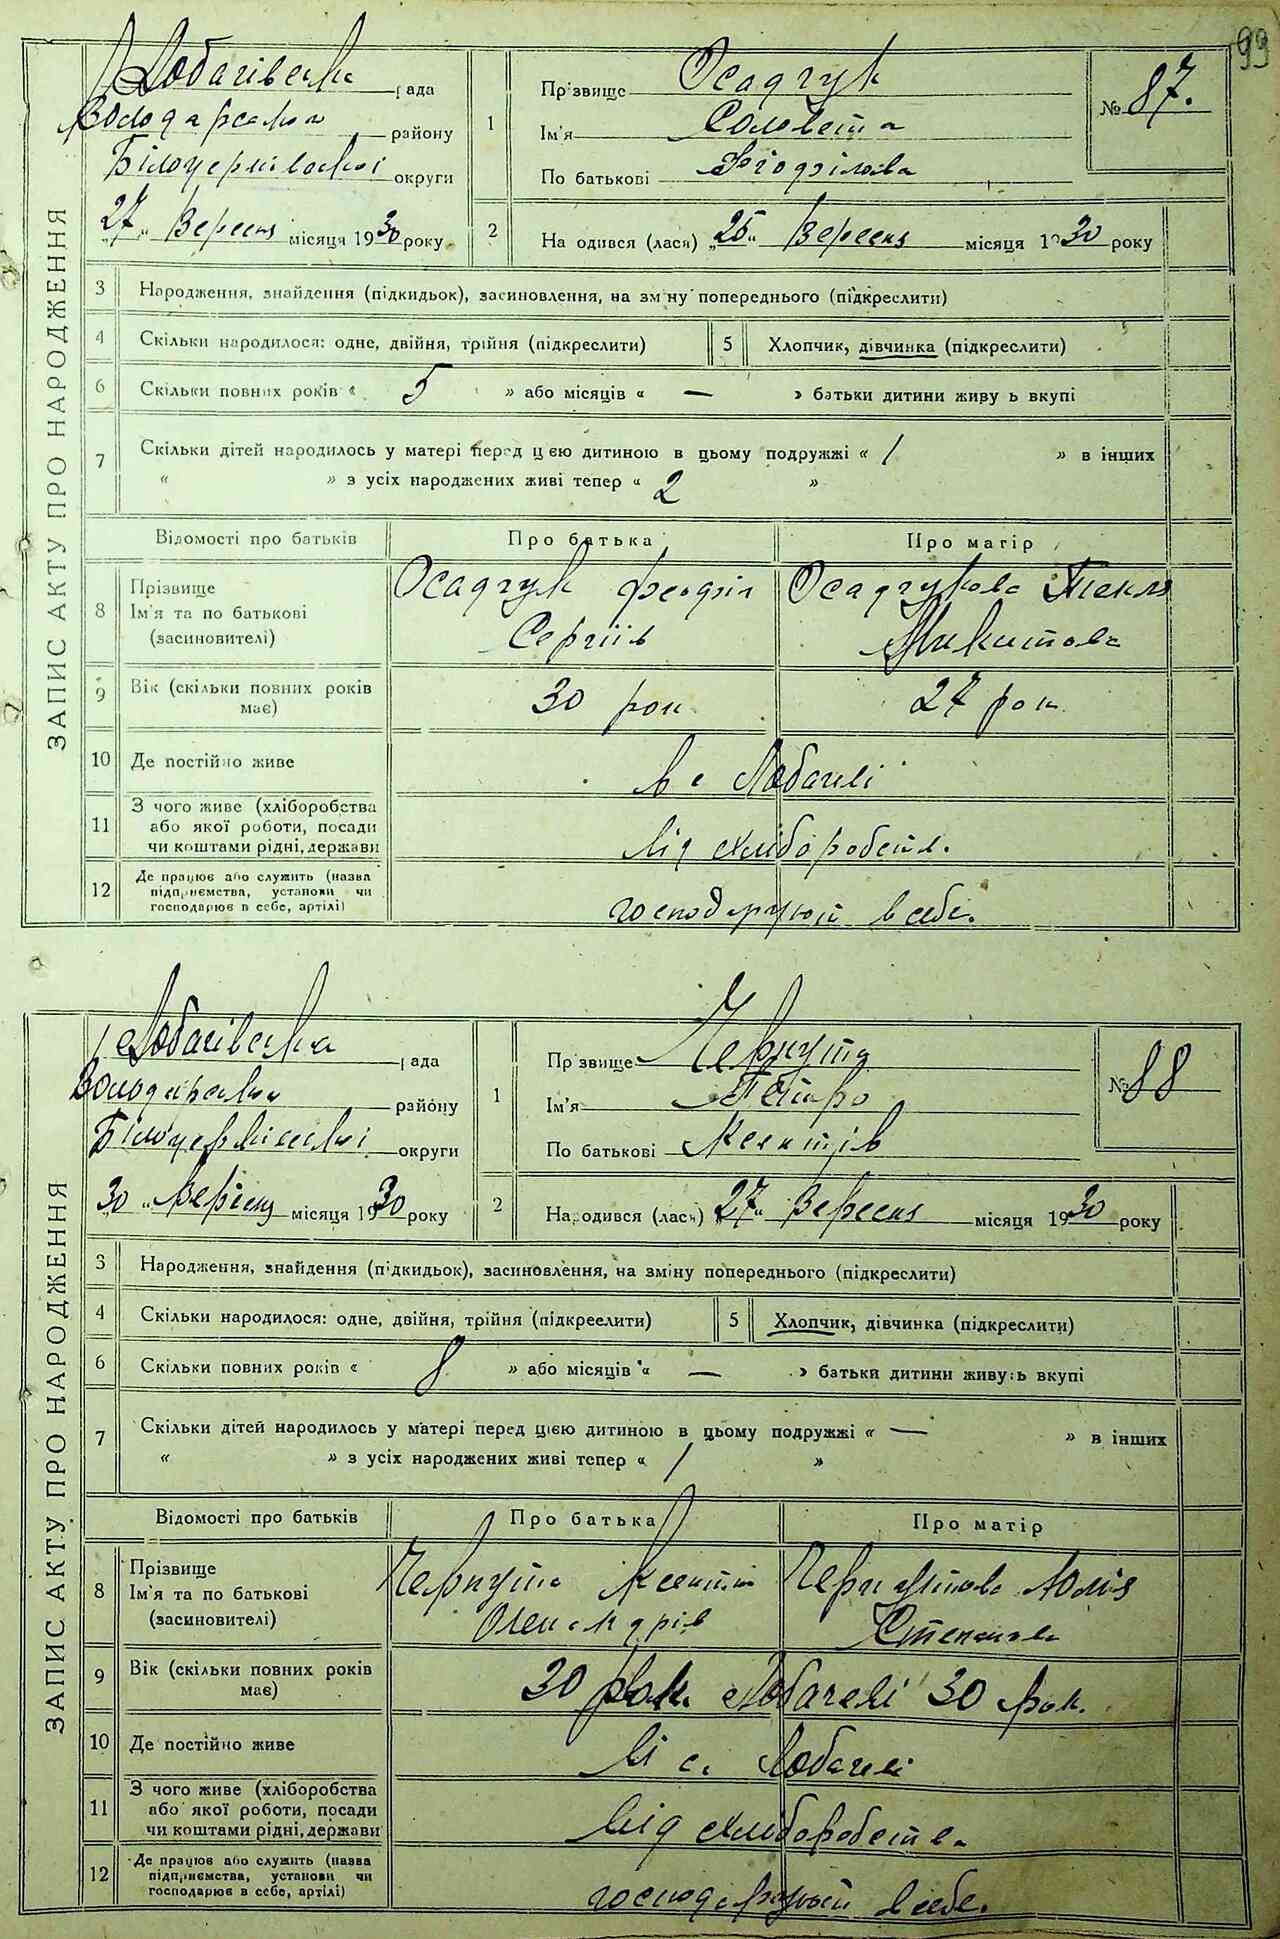 99
ЗАПИС АКТУ ПРО НАРОДЖЕННЯ
Лобачівська рада
Володарського району
Білоцерківської округи
„27“ Вересня місяця 1930 року
1
Прізвище Осадчук
Ім'я
По батькові Феодзілова
№ 87.
2
Народився (лася) „25“ Вересня місяця 1930 року
3 Народження, знайдення (підкидьок), засиновлення, на зміну попереднього (підкреслити)
4 Скільки народилося: одне, двійня, трійня (підкреслити)
5 Хлопчик, дівчинка (підкреслити)
6 Скільки повних років « 5 » або місяців « — » батьки дитини живуть вкупі
7 Скільки дітей народилось у матері перед цією дитиною в цьому подружжі « 1 » в інших
« » з усіх народжених живі тепер « 2 »
Відомості про батьків Про батька Про матір
8 Прізвище
Ім'я та по батькові
(засиновителі)
Осадчук
Сергіїв
Осадчукова Текля
Микитова
9 Вік (скільки повних років має)
30 рок
27 рок
10 Де постійно живе
в с Лобачеві
11 З чого живе (хліборобства
або якої роботи, посади
чи коштами рідні, держави
від хліборобств.
12 Де працює або служить (назва
підприємства, установи чи
господарює в себе, артілі)
господарюють в себе.
ЗАПИС АКТУ ПРО НАРОДЖЕННЯ
Лобачівська рада
Володарського району
Білоцерківської округи
30 „ Вересня місяця 1930 року
1
Прізвище Чернута
Ім'я Петро
По батькові Ксентіїв
№ 88
2
Народився (лася) „27“ Вересня місяця 1930 року
3 Народження, знайдення (підкидьок), засиновлення, на зміну попереднього (підкреслити)
4 Скільки народилося: одне, двійня, трійня (підкреслити)
5 Хлопчик, дівчинка (підкреслити)
6 Скільки повних років « 8 » або місяців « — » батьки дитини живуть вкупі
7 Скільки дітей народилось у матері перед цією дитиною в цьому подружжі « — » в інших
« » з усіх народжених живі тепер « 1 »
Відомості про батьків Про батька Про матір
8 Прізвище
Ім'я та по батькові
(засиновителі)
Чернута Ксентій
Олександрів
Чернутова Юлія
Степанова
9 Вік (скільки повних років має)
30 рок. Лобачеві 30 рок.
10 Де постійно живе
ві с. Лобачеві
11 З чого живе (хліборобства
або якої роботи, посади
чи коштами рідні, держави
від хліборобства
12 Де працює або служить (назва
підприємства, установи чи
господарює в себе, артілі)
господарюють в себе.